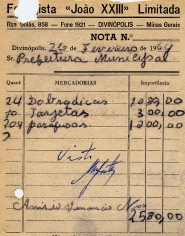 "João XXIII" Limitada
Rua Goiás, 858 — Fone 1921 — DIVINÓPOLIS — Minas Gerais
NOTA N.º
Divinópolis, 26 de Fevereiro de 1964
Sr. Prefeitura Municipal
Quant. MERCADORIAS IMPORTE
24 Dobradiças
10 Tarjetas 300,00
204 parafusos 1200,00
Visto
2580,00